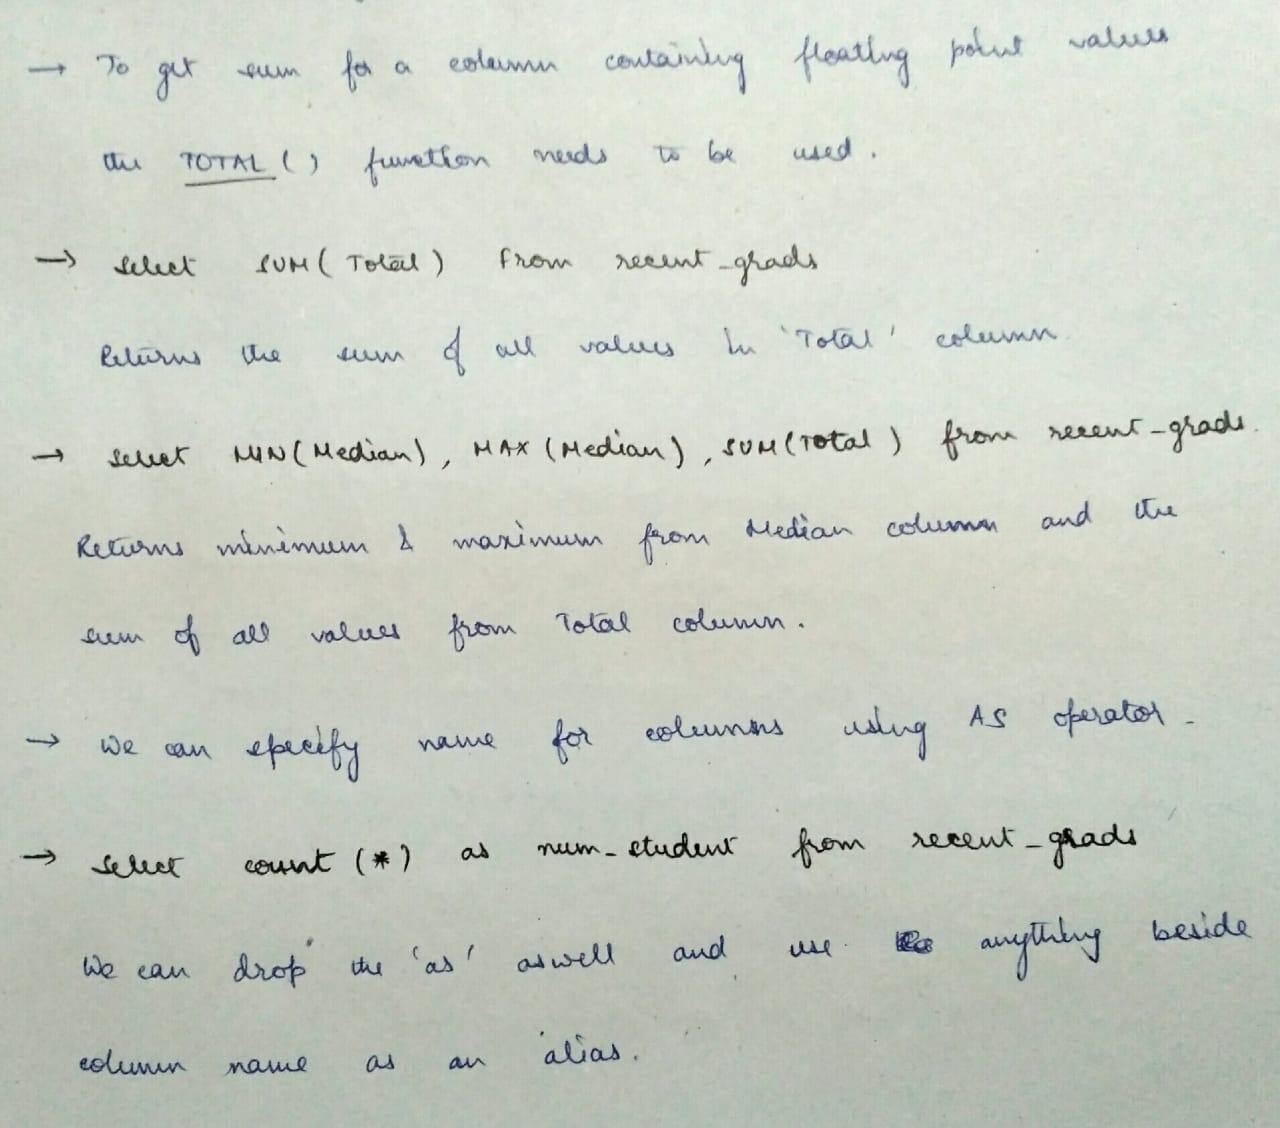 → To get sum for a column containing floating point values
the TOTAL() function needs to be used.
→ select SUM(Total) from recent_grads
Returns the sum of all values in 'Total' column.
→ select MIN(Median), MAX(Median), SUM(Total) from recent_grads.
Returns minimum & maximum from Median column and the
sum of all values from Total column.
→ We can specify name for columns using AS operator.
→ select count(*) as num_student from recent_grads
We can drop the 'as' aswell and use anything beside
column name as an alias.